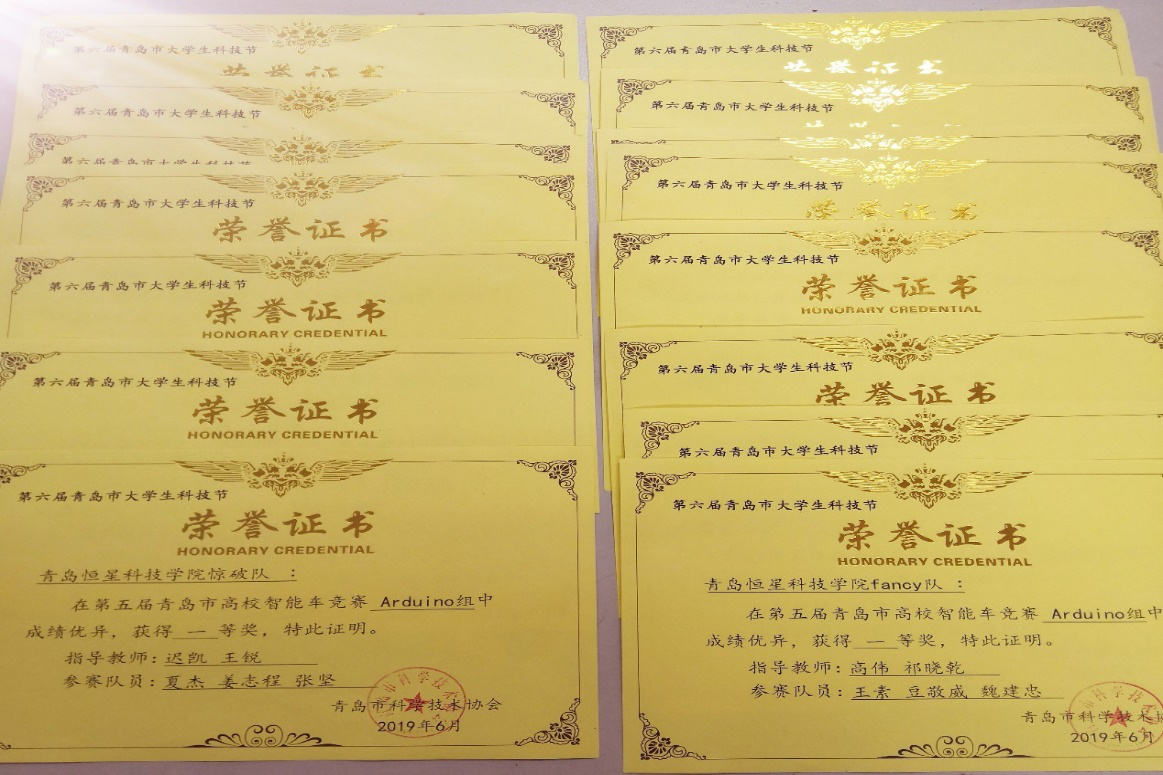 第六届青岛市大学生科技节
荣誉证书
第六届青岛市大学生科技节
第六届青岛市大学生科技节
第六届青岛市大学生科技节
荣誉证书
第六届青岛市大学生科技节
荣誉证书
HONORARY CREDENTIAL
第六届青岛市大学生科技节
荣誉证书
HONORARY CREDENTIAL
第六届青岛市大学生科技节
荣誉证书
HONORARY CREDENTIAL
青岛恒星科技学院惊破队 :
在第五届青岛市高校智能车竞赛 Arduino组中
成绩优异，获得 一 等奖，特此证明。
指导教师：迟凯 王锐
参赛队员：夏杰 姜志程 张坚
青岛市科学技术协会
2019年6月
第六届青岛市大学生科技节
荣誉证书
第六届青岛市大学生科技节
第六届青岛市大学生科技节
荣誉证书
第六届青岛市大学生科技节
荣誉证书
HONORARY CREDENTIAL
第六届青岛市大学生科技节
荣誉证书
第六届青岛市大学生科技节
第六届青岛市大学生科技节
荣誉证书
HONORARY CREDENTIAL
青岛恒星科技学院fancy队 :
在第五届青岛市高校智能车竞赛 Arduino组中
成绩优异，获得 一 等奖，特此证明。
指导教师：高伟 祁晓乾
参赛队员：王素 豆敬威 魏建忠
青岛市科学技术协
2019年6月